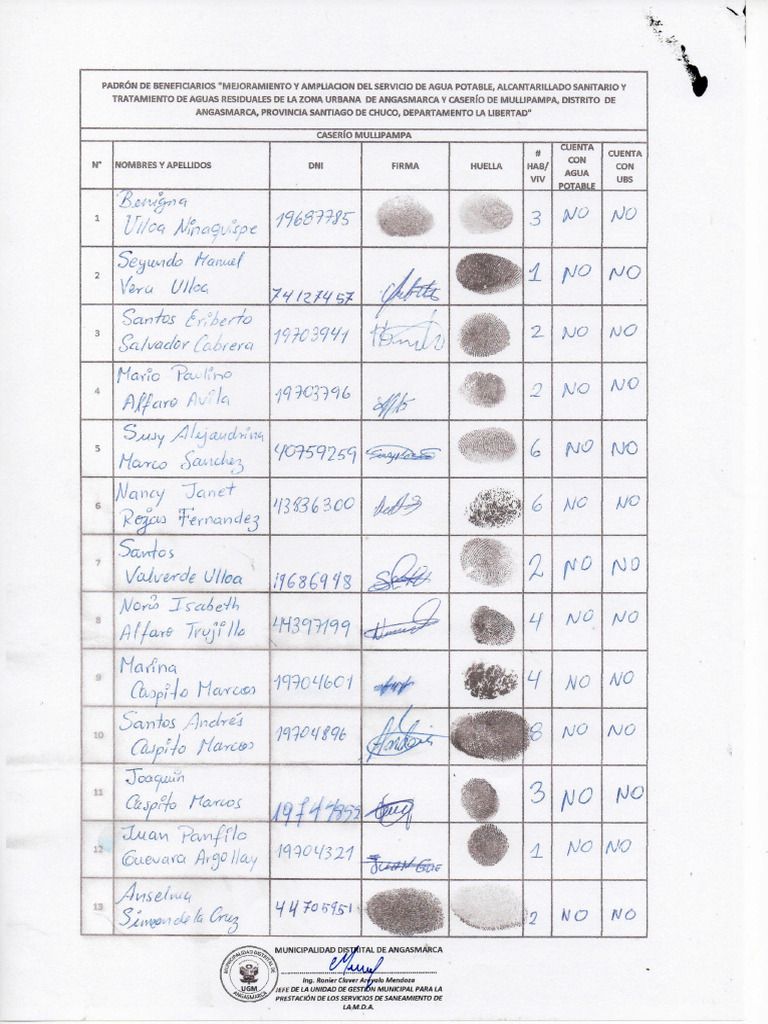 PADRÓN DE BENEFICIARIOS "MEJORAMIENTO Y AMPLIACION DEL SERVICIO DE AGUA POTABLE, ALCANTARILLADO SANITARIO Y
TRATAMIENTO DE AGUAS RESIDUALES DE LA ZONA URBANA DE ANGASMARCA Y CASERÍO DE MULLIPAMPA, DISTRITO DE
ANGASMARCA, PROVINCIA SANTIAGO DE CHUCO, DEPARTAMENTO LA LIBERTAD"
CASERÍO MULLIPAMPA
N° NOMBRES Y APELLIDOS DNI FIRMA HUELLA # HAB/ VIV CUENTA CON AGUA POTABLE CUENTA CON UBS
1 Benigna Ulloa Ninaquispe 19687785 3 NO NO
2 Segundo Manuel Vera Ulloa 74127457 1 NO NO
3 Santos Eriberto Salvador Cabrera 19703941 2 NO NO
4 Mario Paulino Alfaro Avila 19703796 2 NO NO
5 Susy Alejandrina Marco Sanchez 40759259 6 NO NO
6 Nancy Janet Rojas Fernandez 43836300 6 NO NO
7 Santos Valverde Ulloa 19686948 2 NO NO
8 Noris Isabeth Alfaro Trujillo 44397199 4 NO NO
9 Marina Caspito Marcos 19704601 4 NO NO
10 Santos Andrés Caspito Marcos 19704896 8 NO NO
11 Joaquín Caspito Marcos 3 NO NO
12 Juan Panfilo Guevara Argollay 19704321 JUAN GUE 1 NO NO
13 Anselma Simon de la Cruz 44705951 2 NO NO
MUNICIPALIDAD DISTRITAL DE ANGASMARCA
MUNICIPALIDAD DISTRITAL DE
UGM
ANGASMARCA
Ing. Ronier Claver Arévalo Mendoza
JEFE DE LA UNIDAD DE GESTIÓN MUNICIPAL PARA LA
PRESTACIÓN DE LOS SERVICIOS DE SANEAMIENTO DE
LA M.D.A.